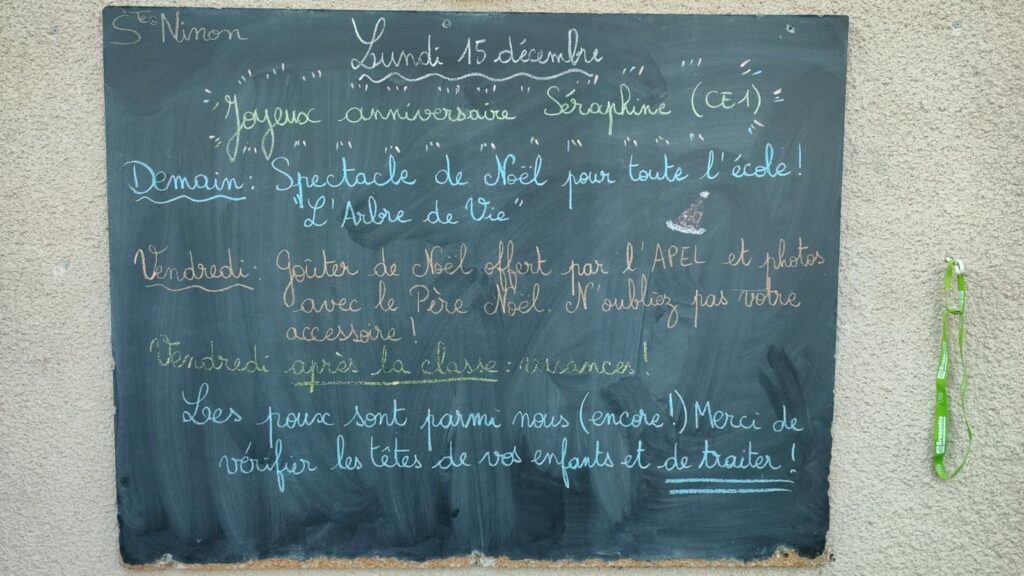 Ste Ninon
Lundi 15 décembre
Joyeux anniversaire Séraphine (CE1)
Demain : Spectacle de Noël pour toute l'école !
"L'Arbre de Vie"
Vendredi : Goûter de Noël offert par l'APEL et photos
avec le Père Noël. N'oubliez pas votre
accessoire !
Vendredi après la classe : vacances !
Les poux sont parmi nous (encore !) Merci de
vérifier les têtes de vos enfants et de traiter !